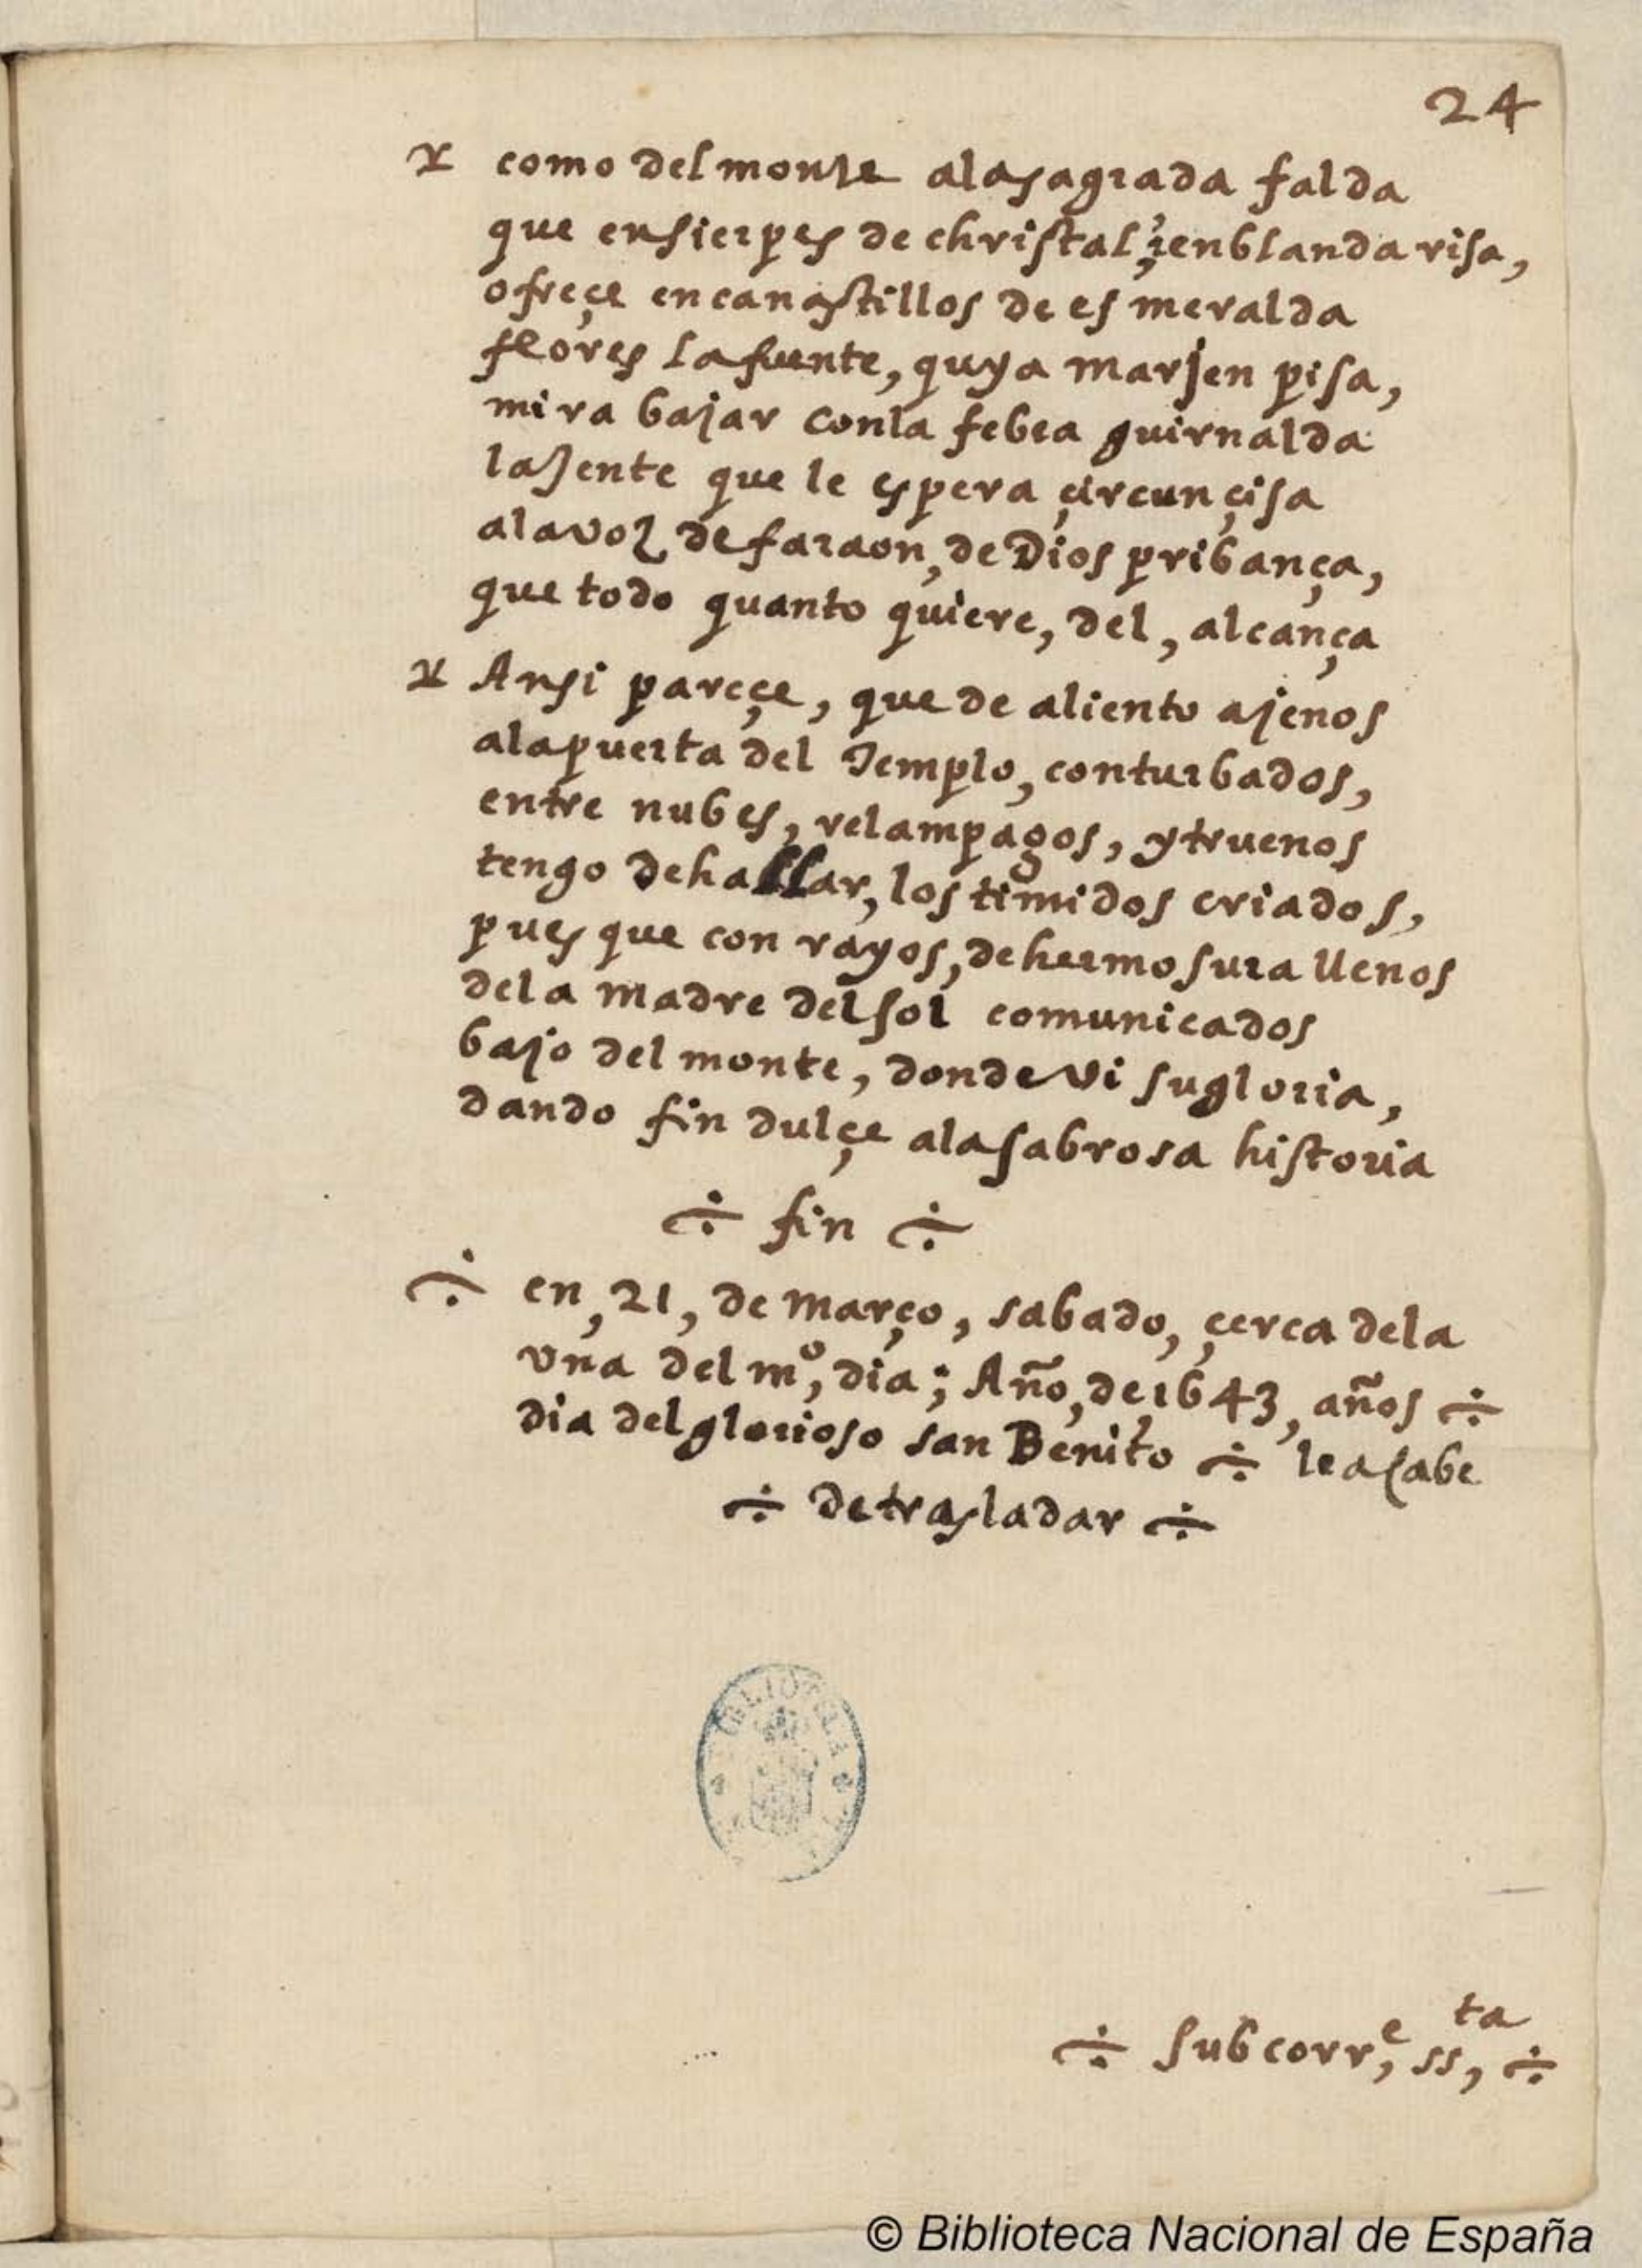 24
como del monte alasagrada falda
que ensierpes de christal, ien blanda risa,
ofreçe encanastillos de esmeralda
flores lafuente, quya marjen pisa,
mira bajar conla febea guirnalda
lajente que le espera çircunçisa
alavoz de faraon, de Dios pribança,
que todo quanto quiere, del, alcança
Ansi pareçe, que de aliento ajenos
alapuerta del Templo, conturbados,
entre nubes, relampagos, ytruenos
tengo dehallar, los timidos criados,
pues que con rayos, dehermosura llenos
dela madre delsol comunicados
bajo del monte, donde vi sugloria,
dando fin dulçe alasabrosa historia
÷ fin ÷
÷ en, 21, de março, sabado, çerca dela
vna del mº, dia; Año, de, 1643, años ÷
dia delglorioso san Benito ÷ leacabe
÷ detrasladar ÷
BIBLIOTECA
÷ subcorrᵉ, ssᵗᵃ, ÷
© Biblioteca Nacional de España